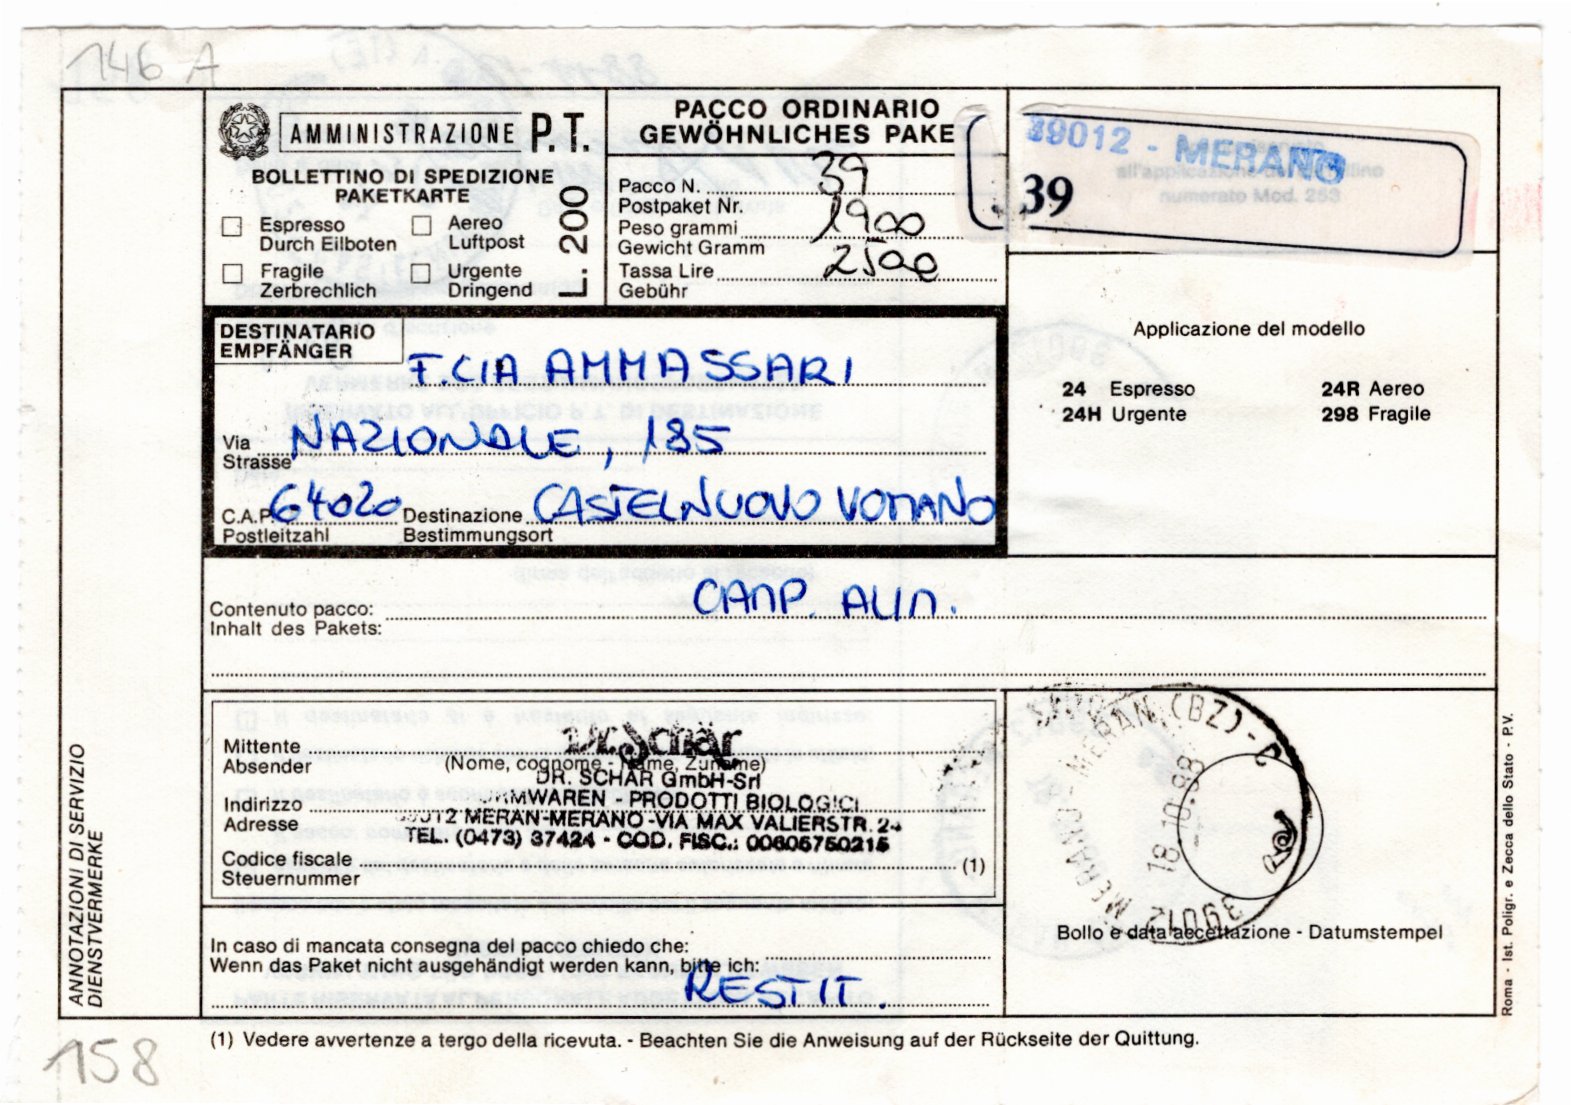 146 A
AMMINISTRAZIONE P.T.
BOLLETTINO DI SPEDIZIONE
PAKETKARTE
Espresso
Durch Eilboten
Aereo
Luftpost
Fragile
Zerbrechlich
Urgente
Dringend
L. 200
PACCO ORDINARIO
GEWÖHNLICHES PAKE
Pacco N. 39
Postpaket Nr.
Peso grammi 1900
Gewicht Gramm
Tassa Lire 2500
Gebühr
39012 - MERANO
39
all'applicazione
numerato Mod. 253
DESTINATARIO
EMPFÄNGER
F.CIA AMMASSARI
Via NAZIONALE, 185
Strasse
C.A.P. 64020 Destinazione CASTELNUOVO VOMANO
Postleitzahl Bestimmungsort
Applicazione del modello
24 Espresso 24R Aereo
24H Urgente 298 Fragile
Contenuto pacco: CAMP. ALIM.
Inhalt des Pakets:
Mittente Dr. Schär
Absender (Nome, cognome - Name, Zuname)
DR. SCHÄR GmbH-Srl
Indirizzo PRODOTTI BIOLOGICI
Adresse MERAN-MERANO-VIA MAX VALIERSTR. 24
TEL. (0473) 37424 - COD. FISC.: 00605750215
Codice fiscale (1)
Steuernummer
39012 MERANO - MERAN (BZ) - C
18-10-88
Bollo e data accettazione - Datumstempel
In caso di mancata consegna del pacco chiedo che:
Wenn das Paket nicht ausgehändigt werden kann, bitte ich:
RESTIT.
ANNOTAZIONI DI SERVIZIO
DIENSTVERMERKE
Roma - Ist. Poligr. e Zecca dello Stato - P.V.
(1) Vedere avvertenze a tergo della ricevuta. - Beachten Sie die Anweisung auf der Rückseite der Quittung.
158